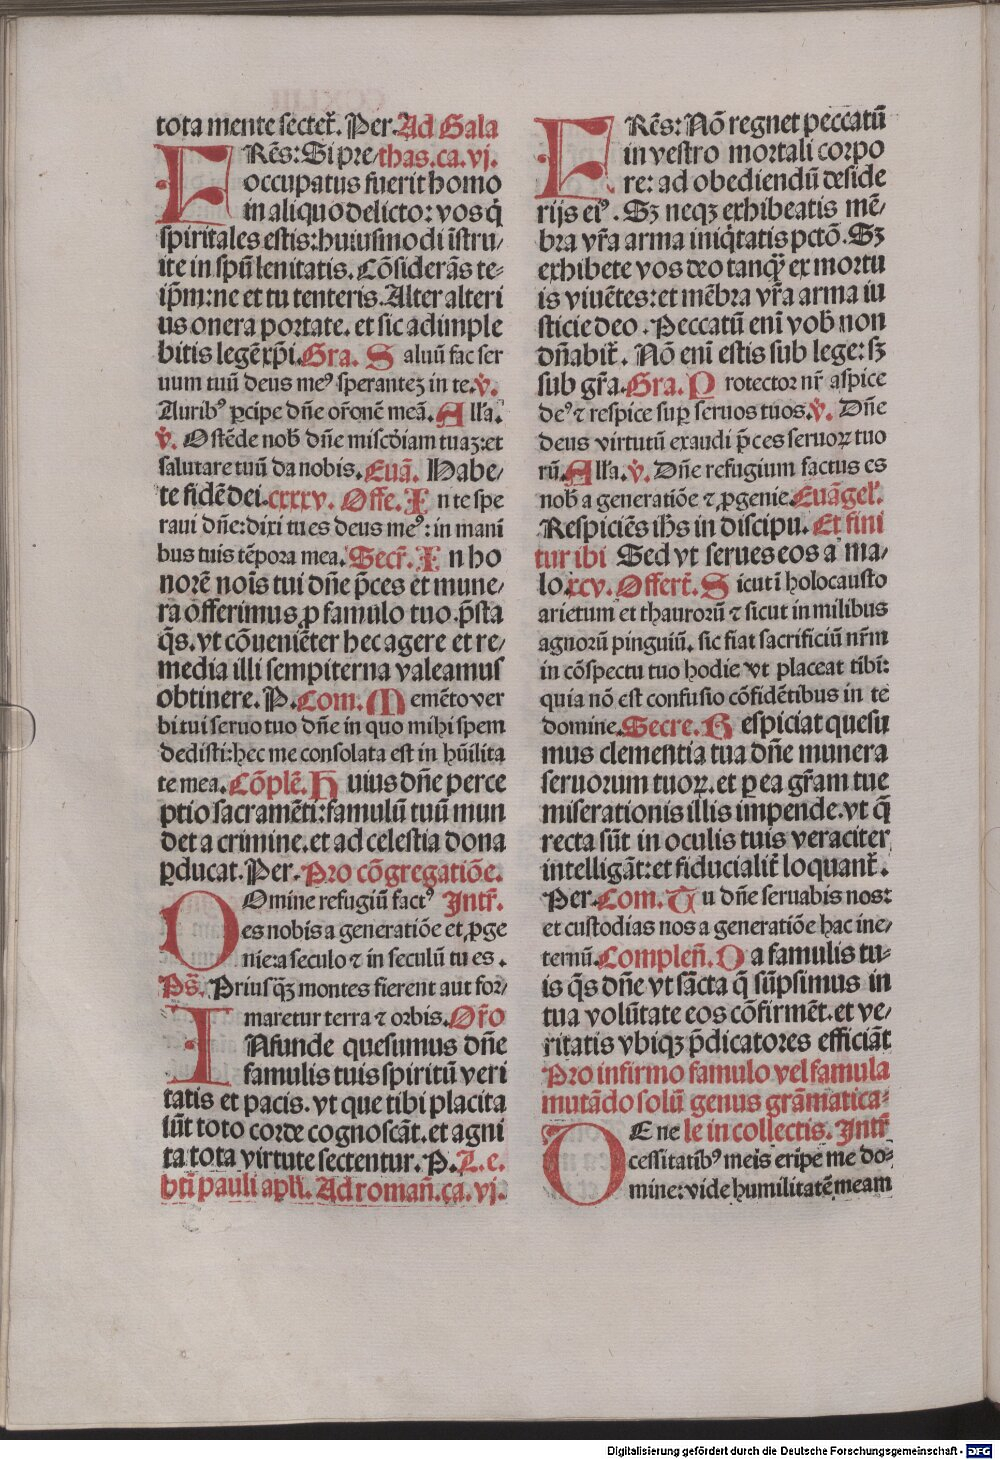 tota mente sectet᷑. Per. Ad Gala
FRẽs: Si pre/thas. ca. vj.
occupatus fuerit homo
in aliquo delicto: vos q̇
spiritales estis: huiusmodi ĩstru/
ite in spũ lenitatis. Cõsiderãs te-
ip̃m: ne et tu tenteris. Alter alteri
us onera portate. et sic adimple
bitis legẽ xp̃i. Gra. Saluũ fac ser
uum tuũ deus meꝰ sperantez in te. ℣.
Auribꝰ ꝑcipe dñe or̃onẽ meã. Alľa.
℣. Ostẽde nob̃ dñe misc̃diam tuaz: et
salutare tuũ da nobis. Euã. Habe/
te fidẽ dei. cxxxv. Offe. In te spe
raui dñe: dixi tu es deus meꝰ: in mani
bus tuis tẽpora mea. Secr̃. In ho
norẽ noĩs tui dñe p̃ces et mune/
ra offerimus ꝓ famulo tuo. p̃sta
q̃s. vt cõueniẽter hec agere et re/
media illi sempiterna valeamus
obtinere. P. Com. Memẽto ver
bi tui seruo tuo dñe in quo mihi spem
dedisti: hec me consolata est in hũilita
te mea. Cõplẽ. Huius dñe perce
ptio sacramẽti: famulũ tuũ mun
det a crimine. et ad celestia dona
ꝑducat. Per. Pro cõgregatiõe.
DOmine refugiũ factꝰ Jntr̃.
es nobis a generatiõe et ꝓge
nie: a seculo ⁊ in seculũ tu es.
Ps̃. Prius qꝫ montes fierent aut for/
maretur terra ⁊ orbis. Or̃o
INfunde quesumus dñe
famulis tuis spiritũ veri
tatis et pacis. vt que tibi placita
sũt toto corde cognoscãt. et agni
ta tota virtute sectentur. P. L. e.
bti pauli apľi. Ad romañ. ca. vj.
FRẽs: Nõ regnet peccatũ
in vestro mortali corpo
re: ad obediendũ deside
rijs eiꝰ. Sꝫ neqꝫ exhibeatis mẽ/
bra vr̃a arma iniq̇tatis pctõ. Sꝫ
exhibete vos deo tanqꝫ ex mortu
is viuẽtes: et mẽbra vr̃a arma iu
sticie deo. Peccatũ enĩ vob̃ non
dñabit᷑. Nõ enĩ estis sub lege: sꝫ
sub gr̃a. Gra. Protector nr̃ aspice
deꝰ ⁊ respice suꝑ seruos tuos. ℣. Dñe
deus virtutũ exaudi p̃ces seruoꝝ tuo
rũ. Alľa. ℣. Dñe refugium factus es
nob̃ a generatiõe ⁊ ꝓgenie. Euãgeľ.
Respiciẽs ih̃s in discipu. Et fini
tur ibi Sed vt serues eos a ma-
lo. xcv. Offert̃. Sicut ĩ holocausto
arietum et thaurorũ ⁊ sicut in milibus
agnorũ pinguiũ. sic fiat sacrificiũ nr̃m
in cõspectu tuo hodie vt placeat tibi:
quia nõ est confusio cõfidẽtibus in te
domine. Secre. Respiciat quesu
mus clementia tua dñe munera
seruorum tuoꝝ. et ꝑ ea gr̃am tue
miserationis illis impende. vt q̃
recta sũt in oculis tuis veraciter
intelligãt: et fiducialit᷑ loquant᷑.
Per. Com. Tu dñe seruabis nos:
et custodias nos a generatiõe hac ine/
ternũ. Compleñ. Da famulis tu-
is q̃s dñe vt sãcta q̃ sũpsimus in
tua volũtate eos cõfirmẽt. et ve/
ritatis vbiqꝫ p̃dicatores efficiãt
Pro infirmo famulo vel famula
mutãdo solũ genus grãmatica-
DE ne le in collectis. Jntr̃
cessitatibꝰ meis eripe me do-
mine: vide humilitatẽ meam
Digitalisierung gefördert durch die Deutsche Forschungsgemeinschaft - DFG